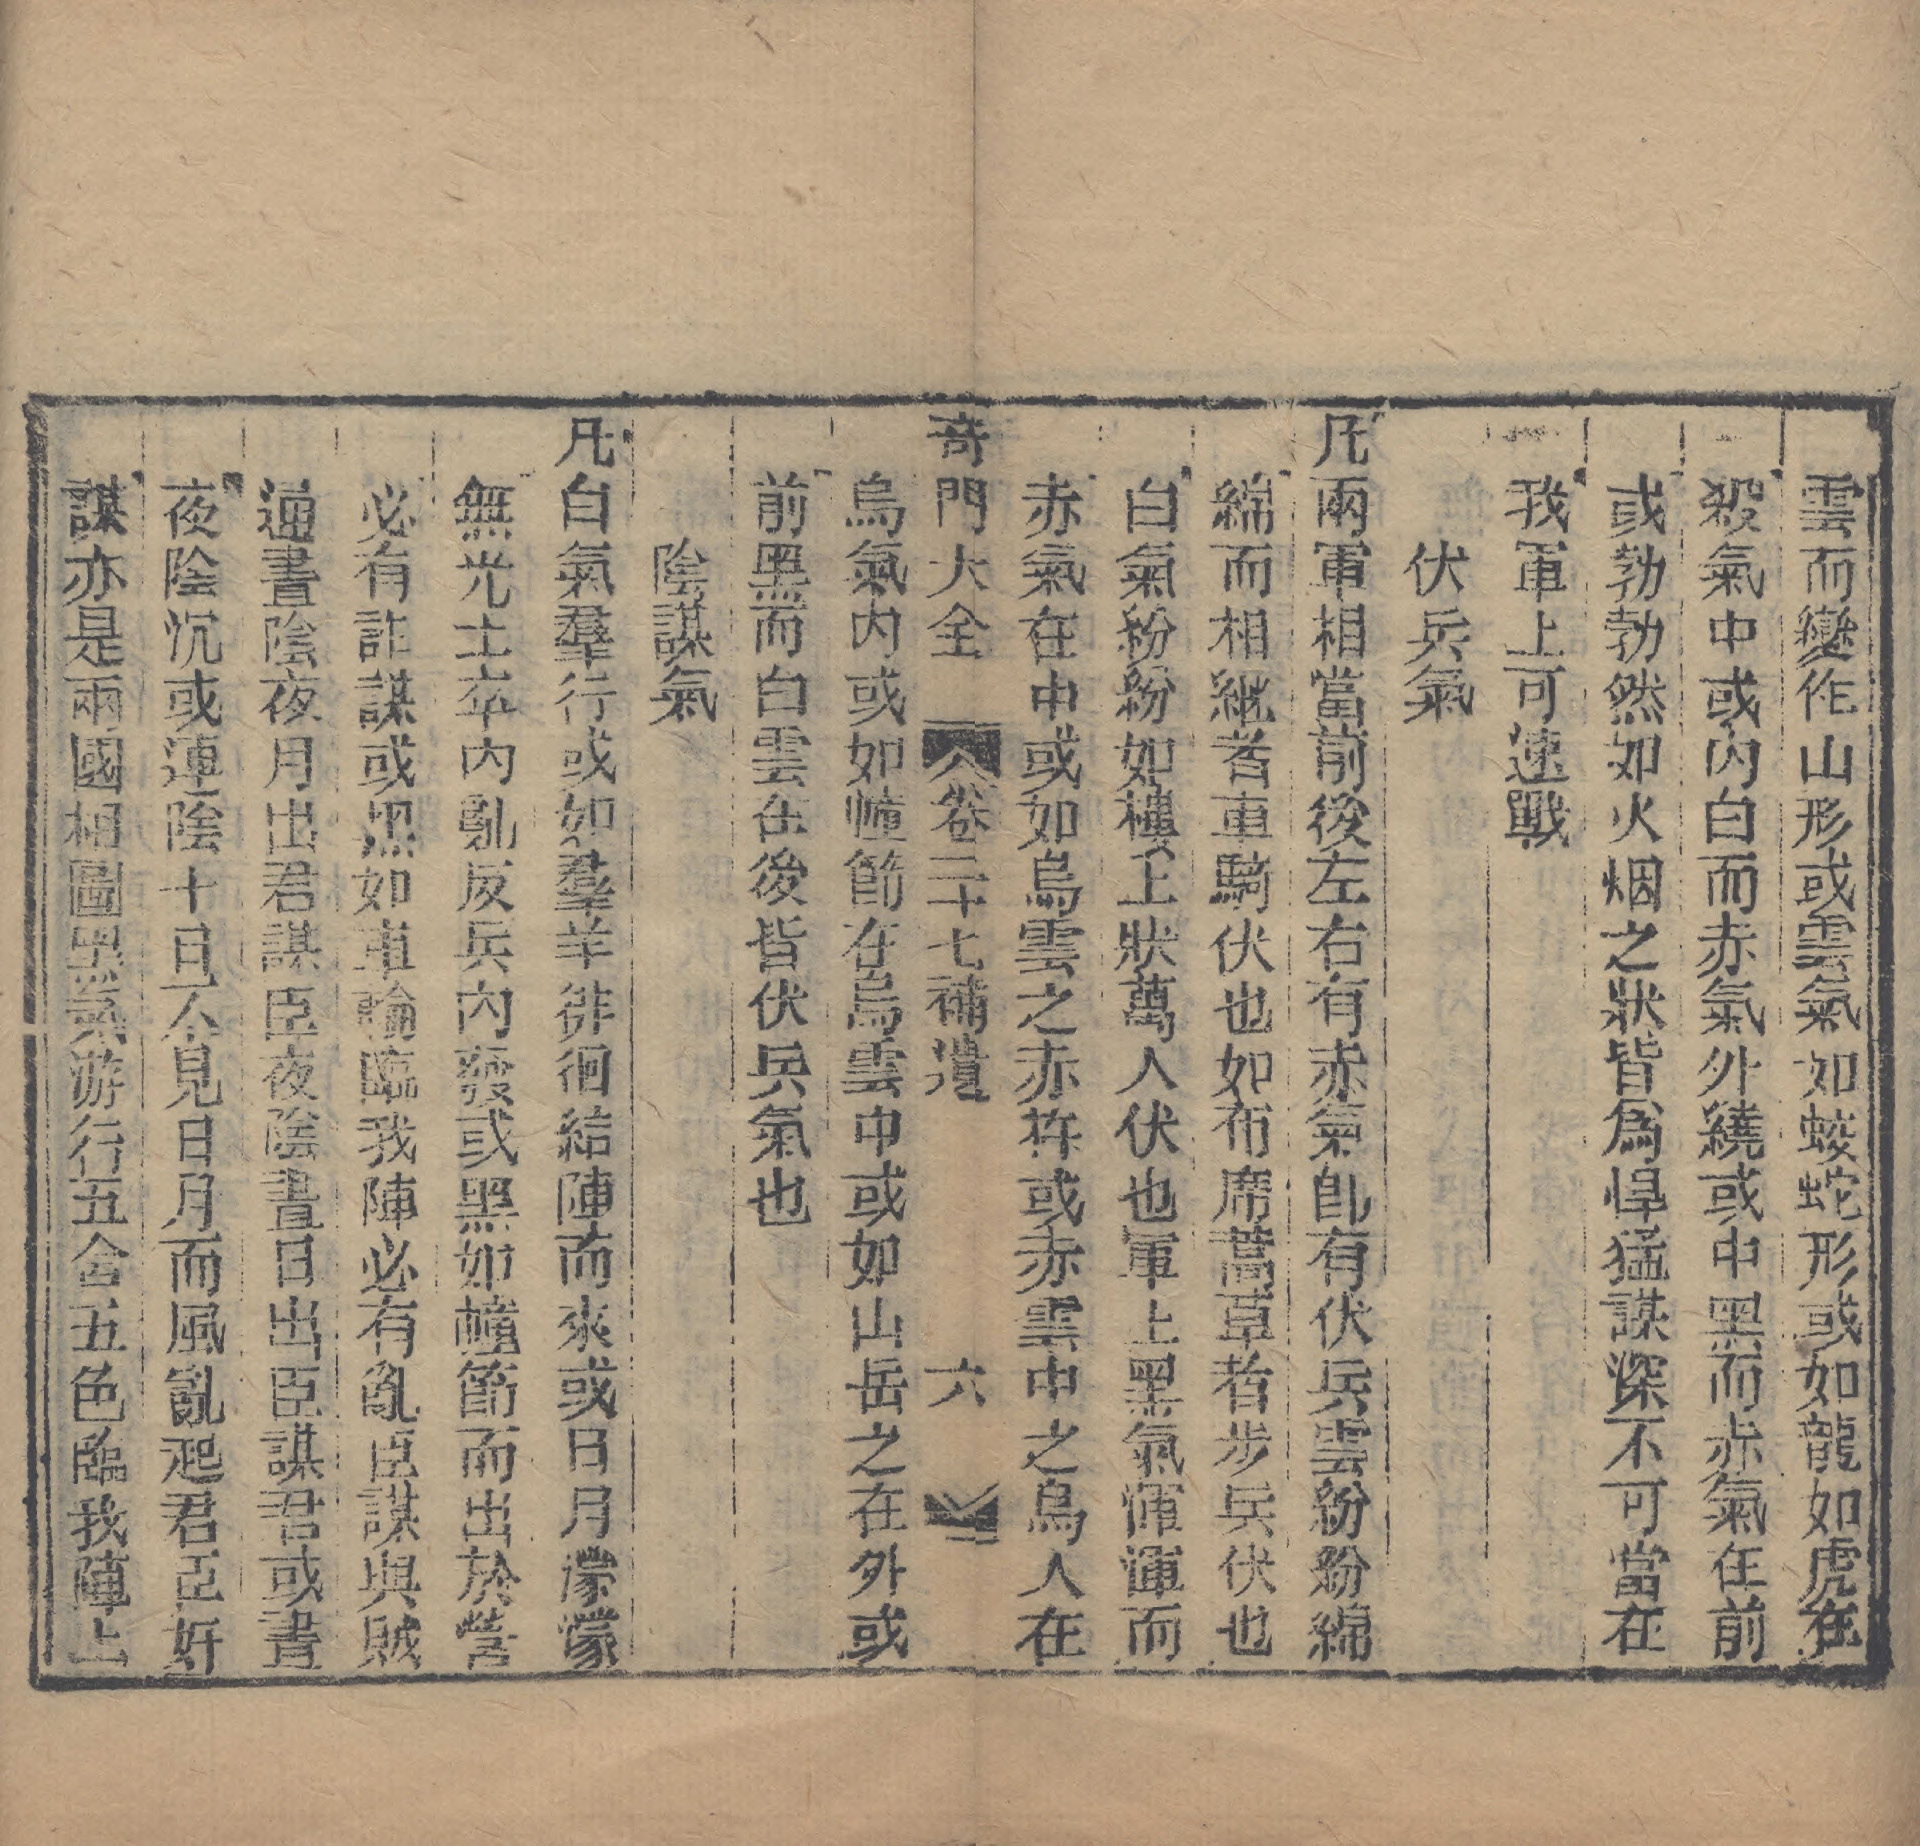 雲而變作山形或雲氣如蛟蛇形或如龍如虎在
殺氣中或內白而赤氣外繞或中黑而赤氣在前
或勃勃然如火烟之狀皆爲悍猛謀深不可當在
我軍上可速戰
伏兵氣
凡兩軍相當前後左右有赤氣卽有伏兵雲紛紛綿
綿而相繼者車騎伏也如布席蒿草者步兵伏也
白氣紛紛如樓上狀萬人伏也軍上黑氣渾渾而
赤氣在中或如烏雲之赤杵或赤雲中之烏人在
奇門大全 卷二十七補遺 六
烏氣內或如幢節在烏雲中或如山岳之在外或
前黑而白雲在後皆伏兵氣也
陰謀氣
凡白氣羣行或如羣羊徘徊結陣而來或日月濛濛
無光士卒內亂反兵內發或黑如幢節而出於營
必有詐謀或黑如車輪臨我陣必有亂臣謀與賊
通晝陰夜月出君謀臣夜陰晝日出臣謀君或晝
夜陰沉或連陰十日不見日月而風亂起君臣奸
謀亦是兩國相圖黑氣游行五合五色臨我陣上